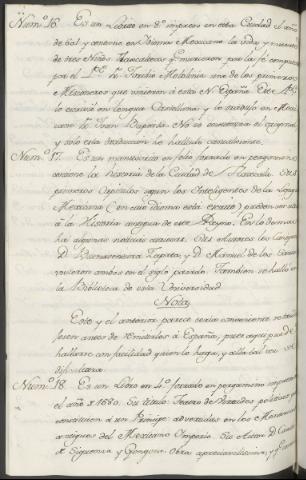 Num.º 16. Es un Libro en 8º impreso en esta Ciudad el año
de 601 y contiene en Idioma Mexicano la vida y muerte
de tres Niños Tlaxcaltecas q.e murieron por la fe compuesta
por el P.e F. Toribio Motolinia uno de los primeros
Misioneros que vinieron á esta N. España. Este
lo escribió en lengua Castellana y lo traduxo en Mexi
cano F. Juan Bautista. No se encuentra el original
y solo esta traduccion se hallará casualmente.
Num.º 17. Es un manuscrito en folio forrado en pergamino
contiene la historia de la Ciudad de Tlaxcala. Sus
primeros Capitulos segun los Inteligentes de la Lengua
Mexicana (en cuyo idioma está escrito) pueden servir
á la Historia antigua de este Reyno. En lo demas
hai algunas noticias curiosas. Sus Autores los Caciques
D. Buenaventura Zapata, y D. Manuel de los Santos
vivieron ambos en el siglo pasado. Tambien se halla en
la Biblioteca de esta Universidad
Nota
Este y el anterior parece sería conveniente se tradu
jesen antes de remitirlos á España, pues aqui puede
hallarse con facilidad quien lo haga, y allá tal vez se
dificultará.
Num.º 18. Es un Libro en 4º forrado en pergamino impreso
el año de 1680. Su titulo: Teatro de Virtudes politicas que
constituien á un Principe advertidas en los Monarcas
antiguos del Mexicano Imperio. Su Autor D. Carlos
de Siguenza y Gongora. Obra apreciadisima, y